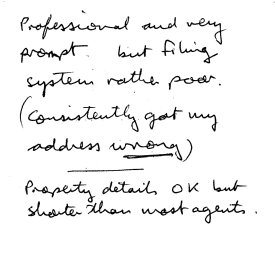 Professional and very
prompt. but filing
system rather poor.
(Consistently got my
address wrong)
Property details OK but
shorter than most agents.